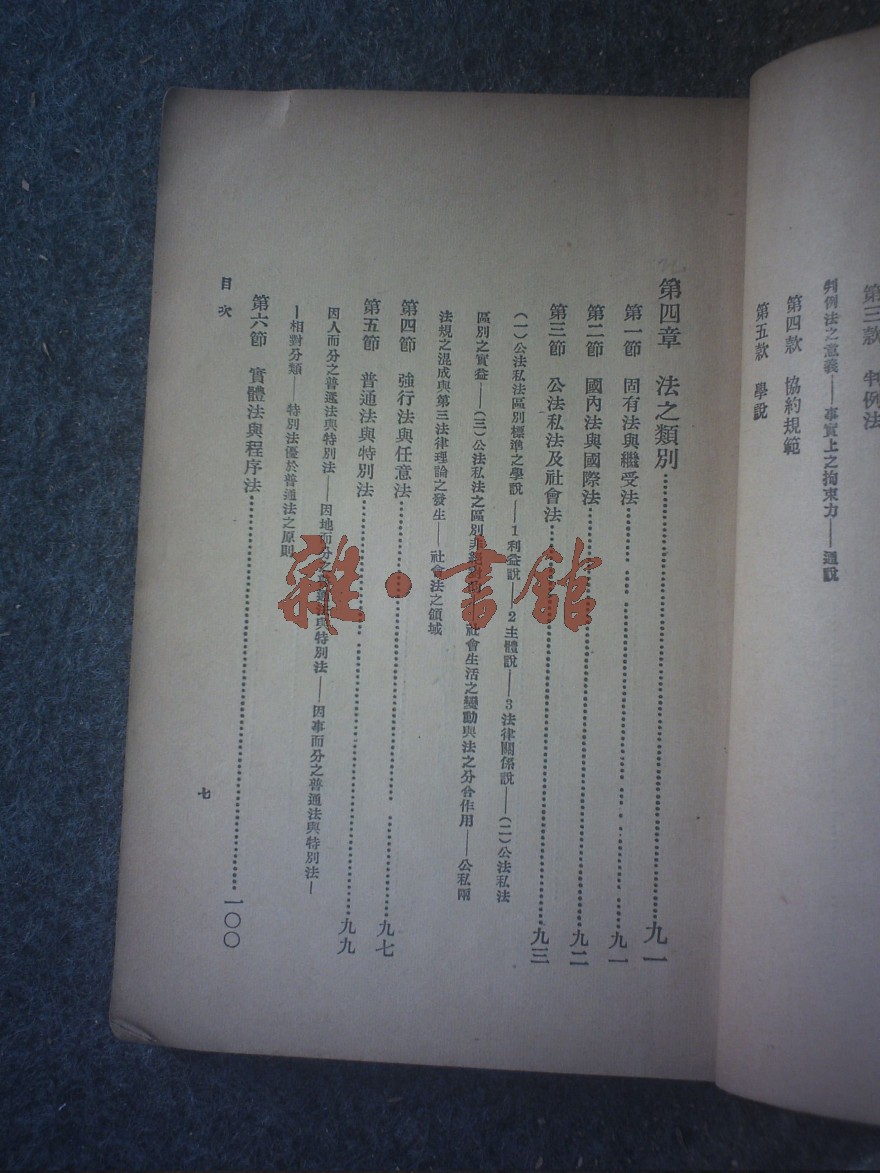 第三款 判例法
判例法之意義——事實上之拘束力——通說
第四款 協約規範
第五款 學說
第四章 法之類別……九一
第一節 固有法與繼受法……九一
第二節 國內法與國際法……九二
第三節 公法私法及社會法……九三
(一)公法私法區別標準之學說——1利益說——2主體說——3法律關係說——(二)公法私法
區別之實益——(三)公法私法之區別非 社會生活之變動與法之分合作用——公私兩
法規之混成與第三法律理論之發生——社會法之領域
第四節 強行法與任意法……九七
第五節 普通法與特別法……九九
因人而分之普通法與特別法——因地而分之普通法與特別法——因事而分之普通法與特別法—
—相對分類——特別法優於普通法之原則
第六節 實體法與程序法……一〇〇
目次
七
雜·書館